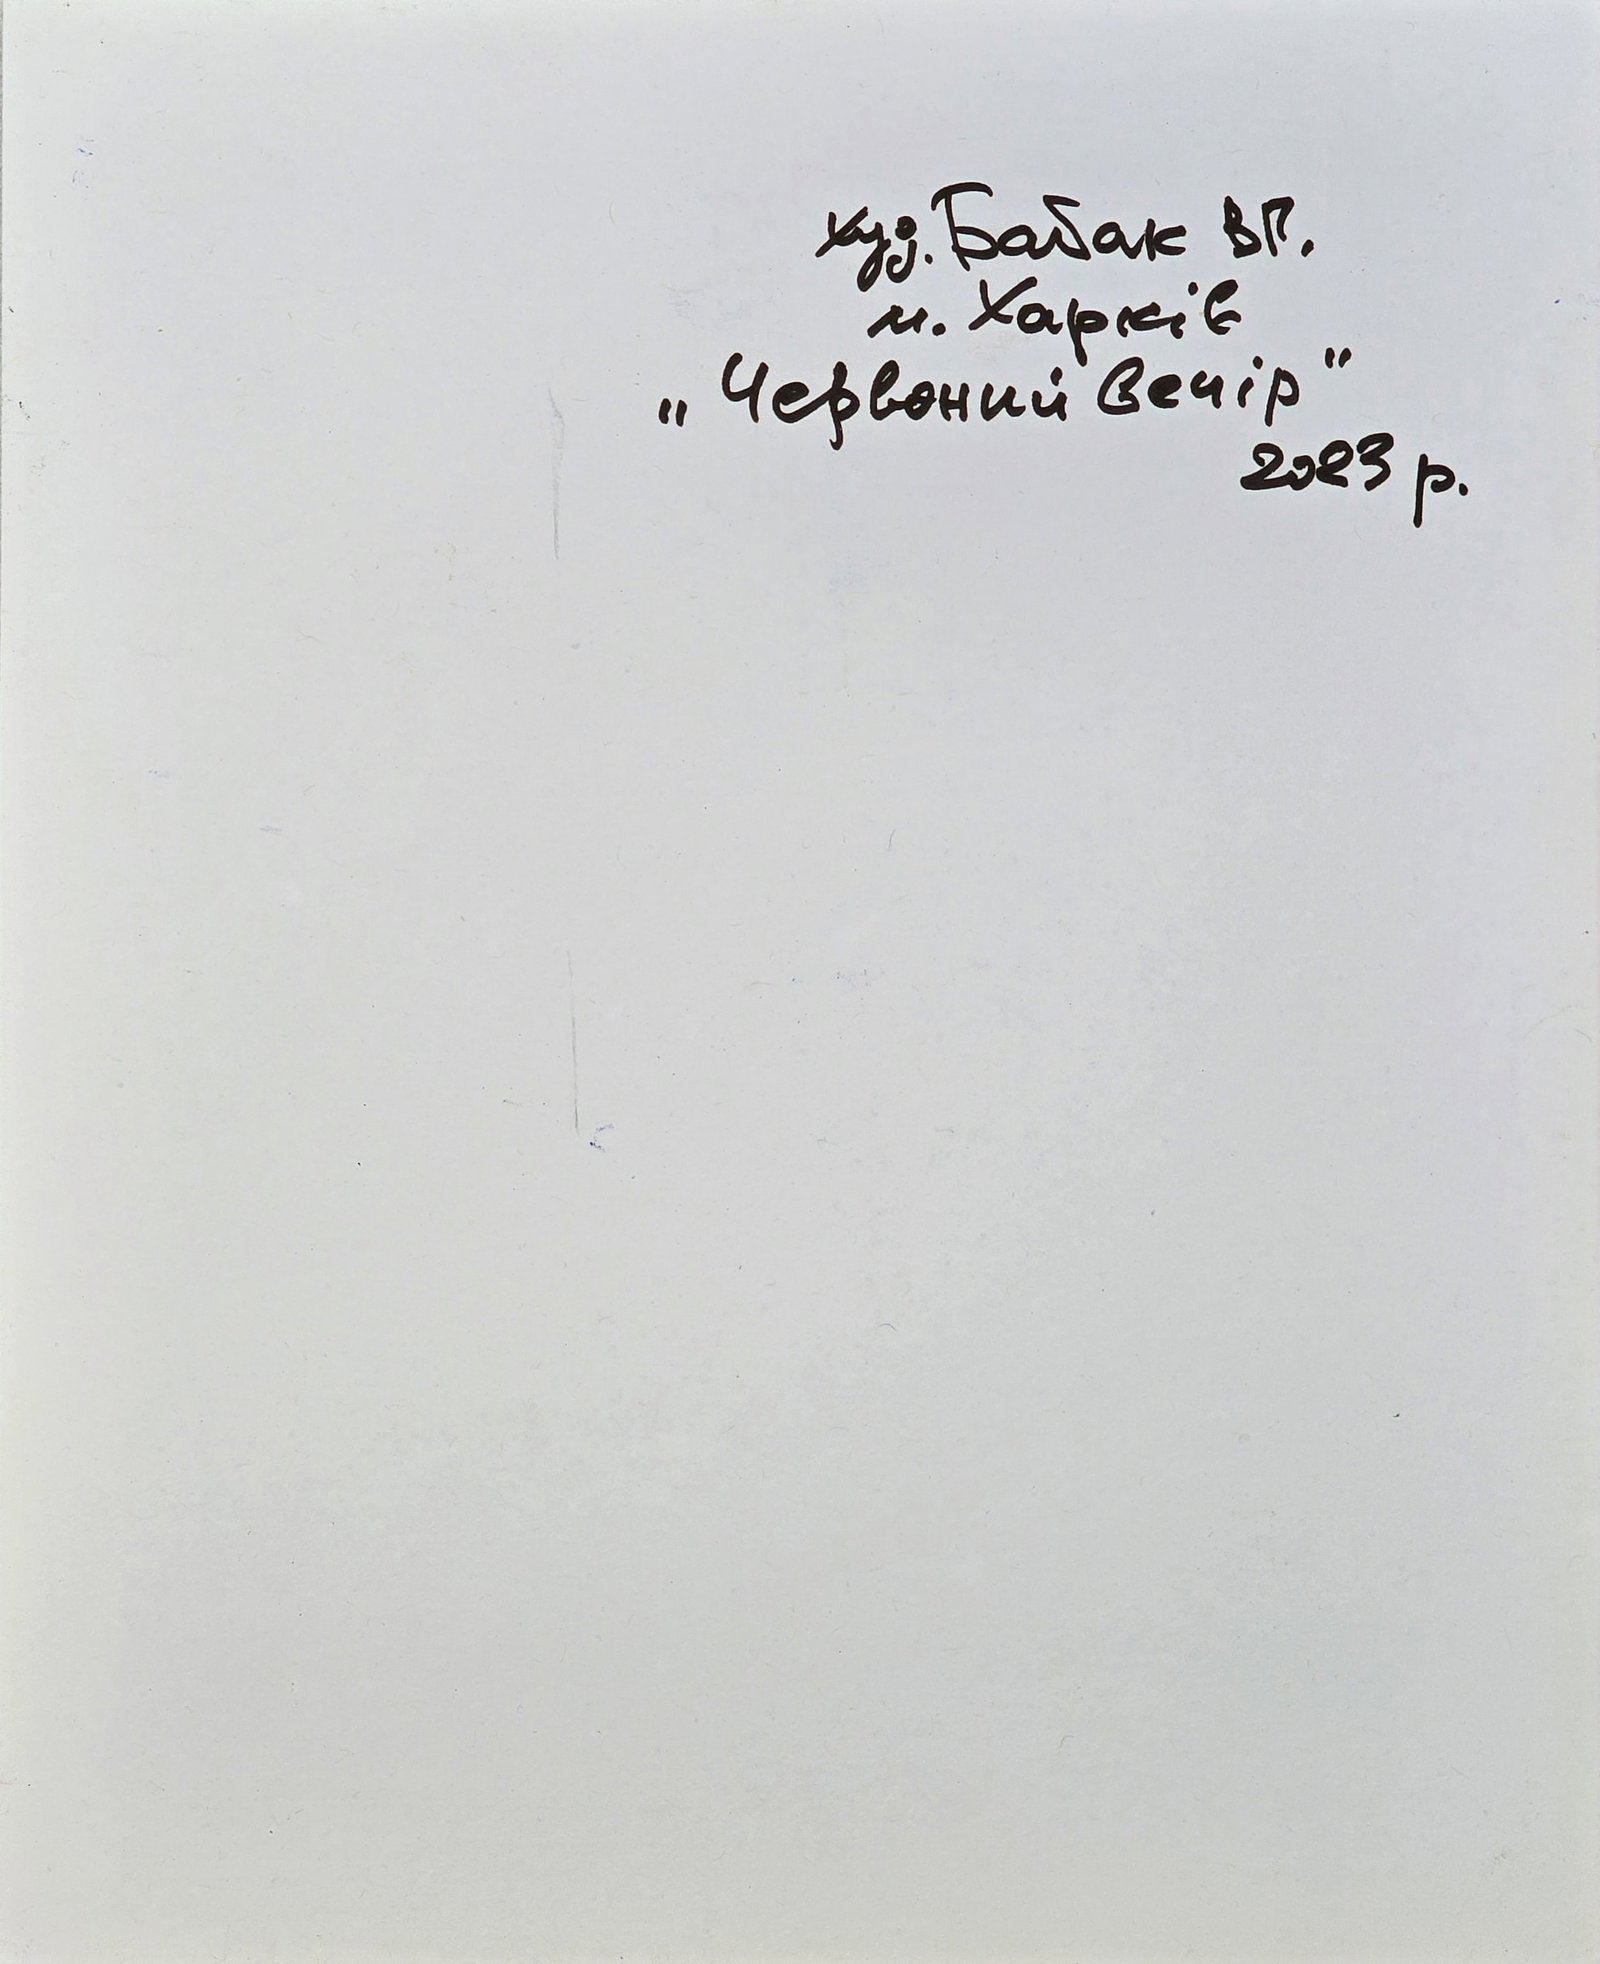 худ. Бабак ВГ.
м. Харків
„Червоний вечір"
2023 р.